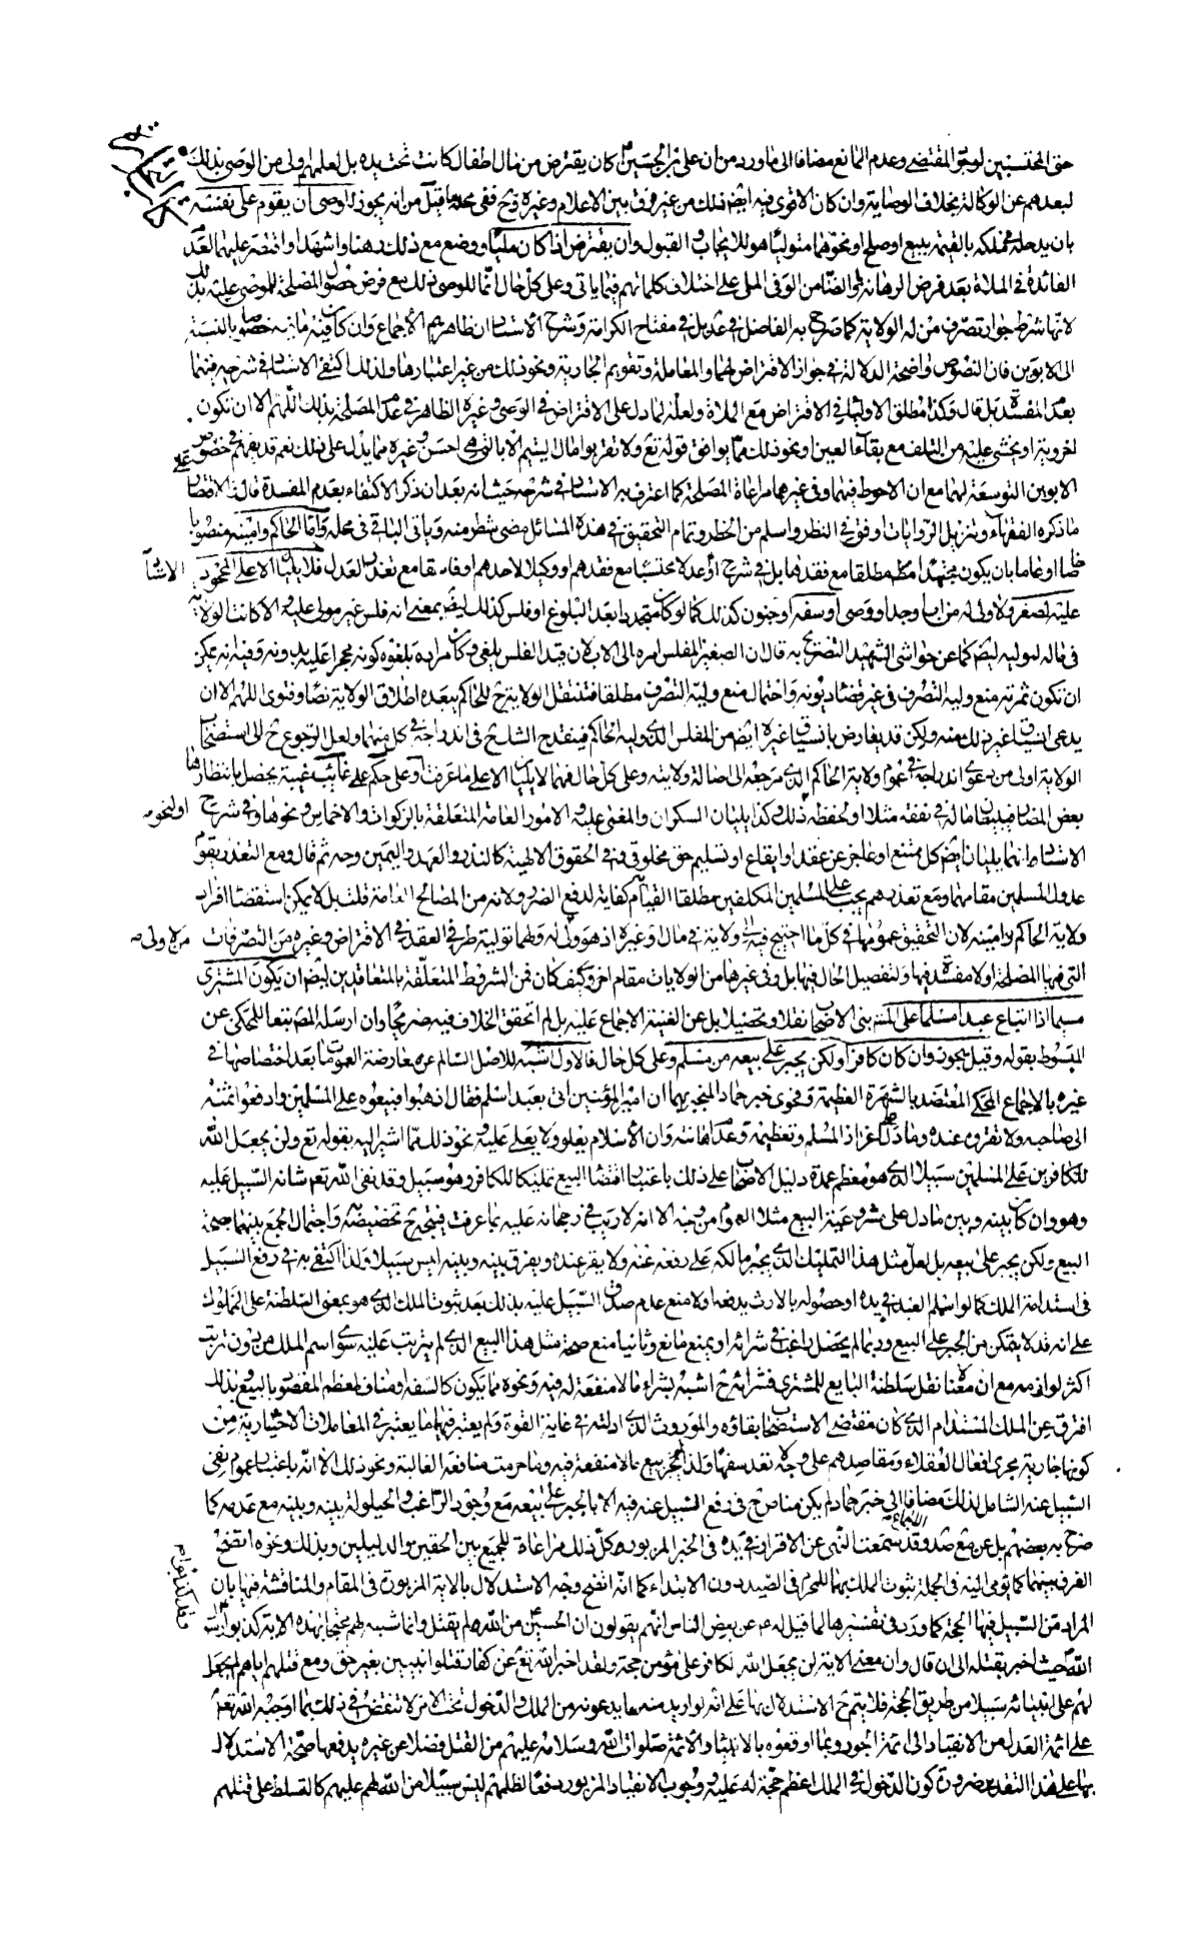 حتى المحتسبين لوجود المقتضي وعدم المانع مضافا الى ما ورد من ان علي بن الحسين كان يقترض من مال اطفال كانت تحت يده بل لعلهم اولى من الوصي بذلك
لبعدهم عن الوكالة بخلاف الوصاية وان كان الاقوى فيه ايضا ذلك من غير فرق بين الاعلام وغيره وح ففي محله ما قيل من انه يجوز للوصي ان يقوم على نفسه
بان يدخله في ملكه بالقيمة ببيع او صلح او نحوهما متوليا هو للايجاب والقبول وان يقترض اذا كان مليا ووضع مع ذلك رهنا واشهد او اقتصر عليهما لعدم
الفائدة في الملاءة بعد فرض الرهانة والضامن الوفي الملي على اختلاف كلماتهم فيما ياتي وعلى كل حال انما للوصي ذلك مع فرض حصول المصلحة للموصى عليه بذلك
لانها شرط جواز تصرف من له الولاية كما صرح به الفاضل في عد بل في مفتاح الكرامة وشرح الاستاد ان ظاهرهم الاجماع وان كان فيه ما فيه خصوصا بالنسبة
الى الابوين فان النصوص واضحة الدلالة في جواز الاقتراض لهما والمعاملة وتقويم الجارية ونحو ذلك من غير اعتبارها ولذلك اكتفى الاستاد في شرحه فيهما
بعدم المفسدة بل قال وكذا مطلق الاولياء في الاقتراض مع الملاءة ولعله لما دل على الاقتراض في الوصي وغيره الظاهر في عدم المصلحة بذلك اللهم الا ان تكون
اخروية او يخشى عليه من التلف مع بقاء العين او نحو ذلك مما يوافق قوله تع ولا تقربوا مال اليتيم الا بالتي هي احسن وغيره مما يدل على ذلك نعم قد يفهم في خصوص
الابوين التوسعة لهما مع ان الاحوط فيهما وفي غيرهما مراعاة المصلحة كما اعترف به الاستاد في شرحه حيث انه بعد ان ذكر الاكتفاء بعدم المفسدة قال والاقتصار على
ما ذكره الفقهاء وتنزيل الروايات اوفق في النظر واسلم من الخطر وتمام التحقيق في هذه المسائل مضى شطر منه وياتي الباقي في محله واما الحاكم وامينه منصوبا
خاصا او عاما بان يكون مجتهدا مطلقا مع فقدهما بل في شرح الاستاد او عدلا محتسبا مع فقدهم او وكيلا لاحدهم او فاسقا مع تعذر العدل فلا يليان الا على المحجور
عليه لصغر ولا ولي له من اب او جد او وصي او سفه او جنون كذلك كما لو كان متجددا بعد البلوغ او فلس كذلك ايضا بمعنى انه فلس غير مولى عليه والا كانت الولاية
في ماله لوليه ايضا كما عن حواشي الشهيد التصريح به قال ان الصغير المفلس امره الى الاب لان قيد الفلس يلغى وكان مراده بلغوه كونه محجرا عليه بدونه وفيه انه يمكن
ان تكون ثمرته منع وليه التصرف في غير قضاء ديونه واحتمال منع وليه التصرف مطلقا فتنتقل الولاية ح للحاكم يبعده اطلاق الولاية نصا وفتوى اللهم الا ان
يدعى انسياق غير ذلك منه ولكن قد يعارض بانسياق غيره ايضا من المفلس الذي وليه الحاكم فينقدح الشك ح في اندراجه في كل منهما ولعل الرجوع ح الى استصحاب
الولاية اولى من دعوى اندراجه في عموم ولاية الحاكم الذي مرجعه الى اصالة ولايته وعلى كل حال فهما لا يليان الا على ما عرفت او على حكم على غائب غيبة يحصل بانتظارها
بعض المضار فيليان ماله في نفقة مثلا او لحفظه او نحوه ذلك وكذا يليان السكران والمغمى عليه والامور العامة المتعلقة بالزكوات والاخماس ونحوها وفي شرح
الاستاد انهما يليان ايضا كل ممتنع او عاجز عن عقد او ايقاع او تسليم حق مخلوقي وفي الحقوق الالهية كالنذر والعهد واليمين وجه ثم قال ومع التعذر يقوم
عدول المسلمين مقامهما ومع تعذرهم يجب على المسلمين المكلفين مطلقا القيام كفاية لدفع الضرر ولانه من المصالح العامة قلت بل لا يمكن استقصاء افراد
ولاية الحاكم وامينه لان التحقيق عمومها في كل ما احتيج فيه الى ولاية في مال او غيره اذ هو ولي من لا ولي له ولهما تولية طرفي العقد في الاقتراض وغيره من التصرفات
التي فيها المصلحة او لا مفسدة فيها ولتفصيل الحال فيها بل وفي غيرها من الولايات مقام اخر وكيف كان فمن الشروط المتعلقة بالمتعاقدين ايضا ان يكون المشتري
مسلما اذا ابتاع عبدا مسلما على المشهور بين الاصحاب نقلا وتحصيلا بل عن الغنية الاجماع عليه بل لم اتحقق الخلاف فيه صريحا وان ارسله المصنف تبعا للمحكي عن
المبسوط بقوله وقيل يجوز وان كان كافرا ولكن يجبر على بيعه من مسلم وعلى كل حال فالاول اشبه للاصل السالم عن معارضة العمومات بعد اختصاصها في
غيره بالاجماع المحكي المعتضد بالشهرة العظيمة وفحوى خبر حماد المنجبر بهما ان امير المؤمنين اتي بعبد اسلم فقال اذهبوا فبيعوه على المسلمين وادفعوا ثمنه
الى صاحبه ولا تقروه عنده وما دل على اعزاز المسلم وتعظيمه وعدم اهانته وان الاسلام يعلو ولا يعلى عليه ونحو ذلك مما اشير اليه بقوله تع ولن يجعل الله
للكافرين على المسلمين سبيلا الذي هو معظم عمدة دليل الاصحاب على ذلك باعتبار اقتضاء البيع تمليكا للكافر وهو سبيل وقد نفى الله تعالى شانه السبيل عليه
وهو وان كان بينه وبين ما دل على مشروعية البيع مثلا العموم من وجه الا انه لا ريب في رجحانه عليه بما عرفت فيتجه ح تخصيصه واحتمال الجمع بينهما صحة
البيع ولكن يجبر على بيعه بل لعل مثل هذا التمليك الذي يجبر مالكه على رفعه عنه ولا يقر عنده ويفرق بينه وبينه ليس سبيلا ولذا اكتفي به في رفع السبيل
في استدامة الملك كما لو اسلم العبد في يده او حصوله بالارث يدفعه اولا منع عدم صدق السبيل عليه بذلك بعد ثبوت الملك الذي هو بمعنى السلطنة على المملوك
على انه قد لا يتمكن من الجبر على البيع وربما لم يحصل راغب في شرائه او يمنع مانع وثانيا منع صحة مثل هذا البيع الذي لم يترتب عليه سوى اسم الملك من دون ترتب
اكثر لوازمه مع ان معنا نقل سلطنة البايع للمشتري فشرائه ح اشبه بشراء ما لا منفعة له فيه ونحوه مما يكون كالسفه ومناف لمعظم المقصود بالبيع وبذلك
افترق عن الملك المستدام الذي كان مقتضى الاستصحاب بقاؤه والموروث الذي ادلته في غاية القوة ولم يعتبر فيهما ما يعتبر في المعاملات الاختيارية من
كونها جارية مجرى افعال العقلاء ومقاصدهم على وجه لا تعد سفها ولذا لم يجز بيع ما لا منفعة فيه وما حرمت منافعه الغالبة ونحو ذلك الا انه باعتبار عموم نفي
السبيل عنه الشامل لذلك مضافا الى خبر حماد لم يكن مناص ح في رفع السبيل عنه فيه الا بالجبر على بيعه مع وجود الراغب والحيلولة بينه وبينه مع عدمه كما
صرح به بعضهم بل عن مع صد وقد سمعت النهي عن الاقرار في يده في الخبر المزبور وكل ذلك مراعاة للجمع بين الحقين والدليلين وبذلك ونحوه اتضح
الفرق بينهما كما يومي اليه في الجملة ثبوت الملك بهما للمحرم في الصيد دون الابتداء كما انه اتضح وجه الاستدلال بالاية المزبورة في المقام والمناقشة فيها بان
المراد من السبيل فيها الحجة كما ورد في تفسيرها لما قيل له ع عن بعض الناس انهم يقولون ان الحسين من الله لم يقتل وانما شبه لهم محتجا بهذه الاية كذبوا
الله حيث اخبر بقتله الى ان قال وان معنى الاية لن يجعل الله لكافر على مؤمن حجة ولقد اخبر الله تع عن كفار قتلوا نبيين بغير حق ومع قتلهم اياهم لم يجعل
لهم على انبيائه سبيلا من طريق الحجة فلا يتم ح الاستدلال بها على انه لو اريد منه ما يدعونه من الملك والدخول تحت الامر لا تنقض في ذلك بما اوجبه الله تع
على ائمة العدل من الانقياد الى ائمة الجور وبما اوقعوه بالانبياء والائمة صلوات الله وسلامه عليهم من القتل فضلا عن غيره يدفعها صحة الاستدلال
بها على هذا التقدير ضرورة كون الدخول في الملك اعظم حجة له عليه ووجوب الانقياد المزبور دفعا لظلمهم ليس سبيلا من الله لهم عليهم كالتسلط على قتلهم